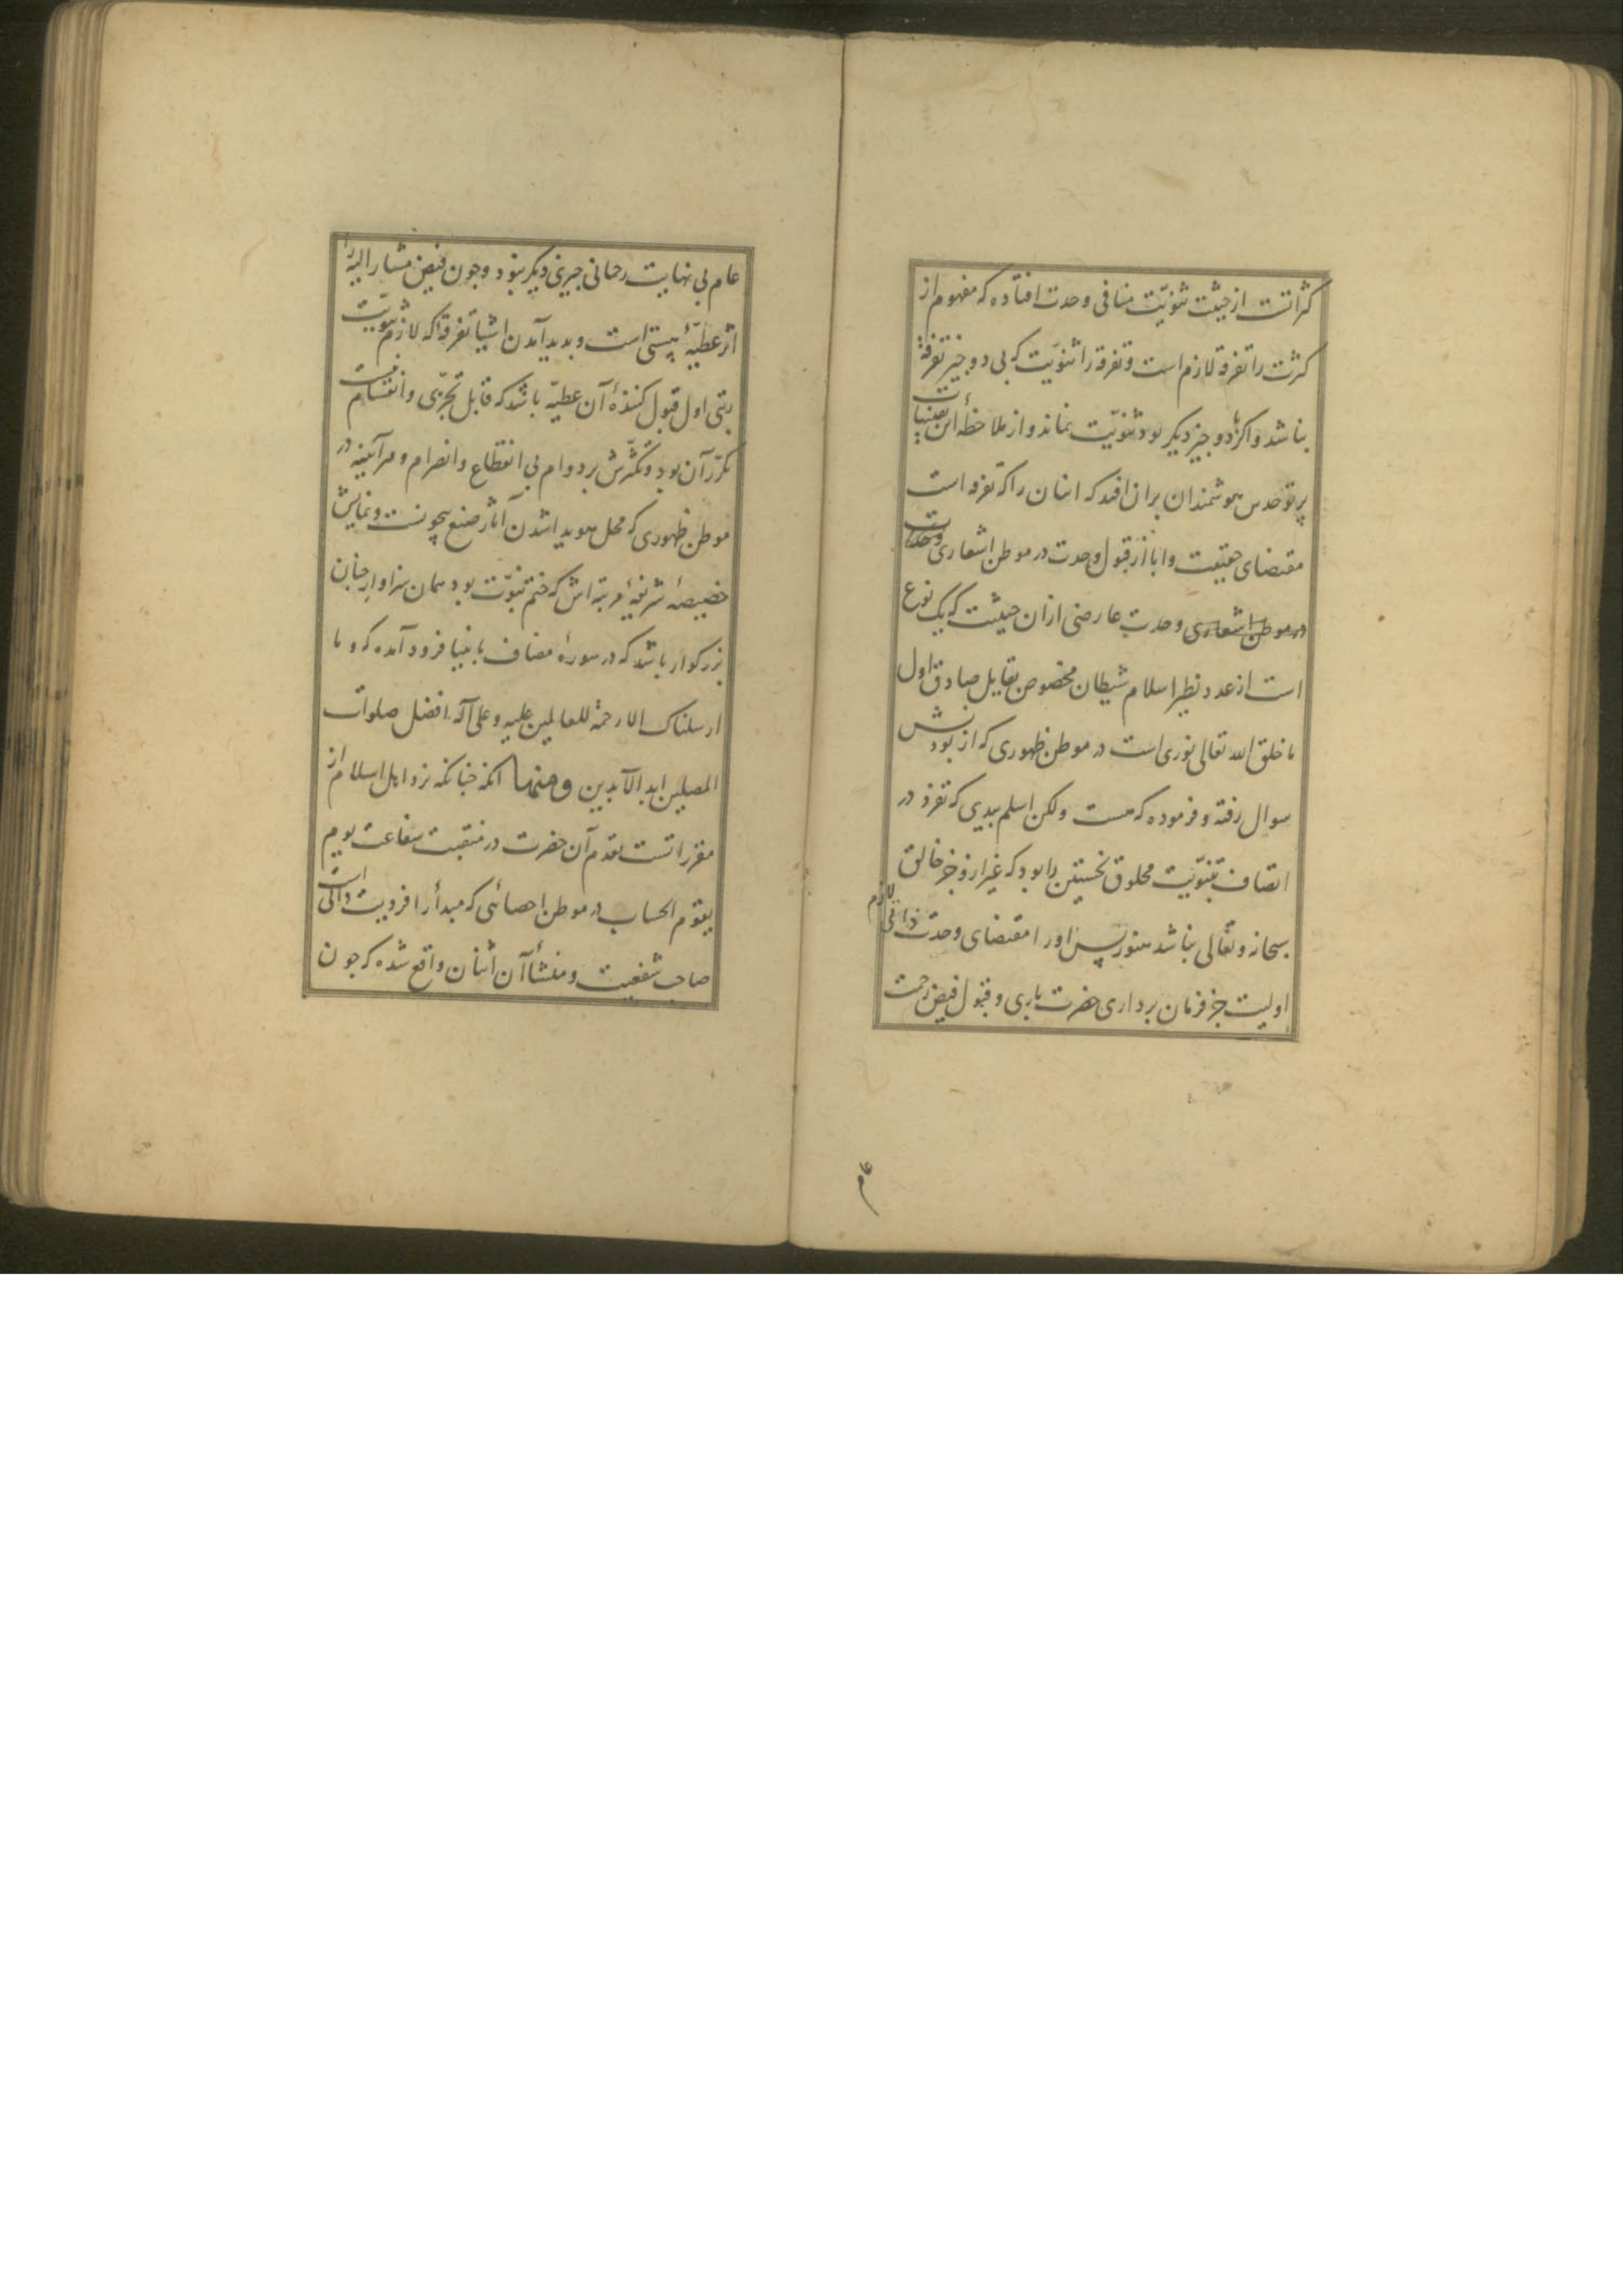 کثراتست از حیثیت ثنویّت منافی وحدت افتاده که مفهوم از
کثرت را تفرقه لازم است و تفرقه را ثنویّت که بی دو چیز تفرقه
نباشد و اکر با دو چیز دیکر بود ثنویّت نماند و از ملاحظهٔ این
پرتو حدس هوشمندان بران افتد که اثنان را که تفرقه است
مقتضای حقیقت و ابا از قبول وحدت در موطن اشعاری وحدت
در موطن اشعاری وحدت عارضی ازان حیثیت که یک نوع
است از عدد نظیر اسلام شیطان مخصوص بقایل صادق اول
ما خلق الله تعالی نوری است در موطن ظهوری که از بودنش
سوال رفته و فرموده که هست ولکن اسلم بیدی که تفرقه در
اتصاف ثنویّت مخلوق نخستین را بود که غیر ازو جز خالق
سبحانه و تعالی نباشد هنوز پس او را مقتضای وحدت ذاتی لازم
اولیت جز فرمان برداری حضرت باری و قبول فیض رحمت
عام
عام بی نهایت رحمانی چیزی دیکر نبود و چون فیض مشار الیه را
اثر عطیّهٔ هستی است و پدید آمدن اشیا تفرقه که لازم ثنویّت
رتبی اول قبول کنندهٔ آن عطیّه باشد که قابل تجزّی و انقسامست
تکرّر آن بود و تکثّرش بر دوام بی انقطاع و انصرام و هرآیینه در
موطن ظهوری که محل هویدا شدن آثار صنع بیچونست و نمایش
خصیصهٔ شریفهٔ مرتبه اش که ختم نبوّت بود همان سزاوار جنان
بزرکوار باشد که در سورهٔ مضاف بانبیا فرود آمده که و ما
ارسلناک الا رحمة للعالمین علیه و علی آله افضل صلوات
المصلین ابد الآبدین ومنها انکه چنانکه نزد اهل اسلام از
مقرراتست تقدم آن حضرت در منقبت شفاعت یوم
یقوم الحساب در موطن احصائی که مبدأ را فردیت ذاتی است
صاحب شفعیت و منشأ آن اثنان واقع شده که چون